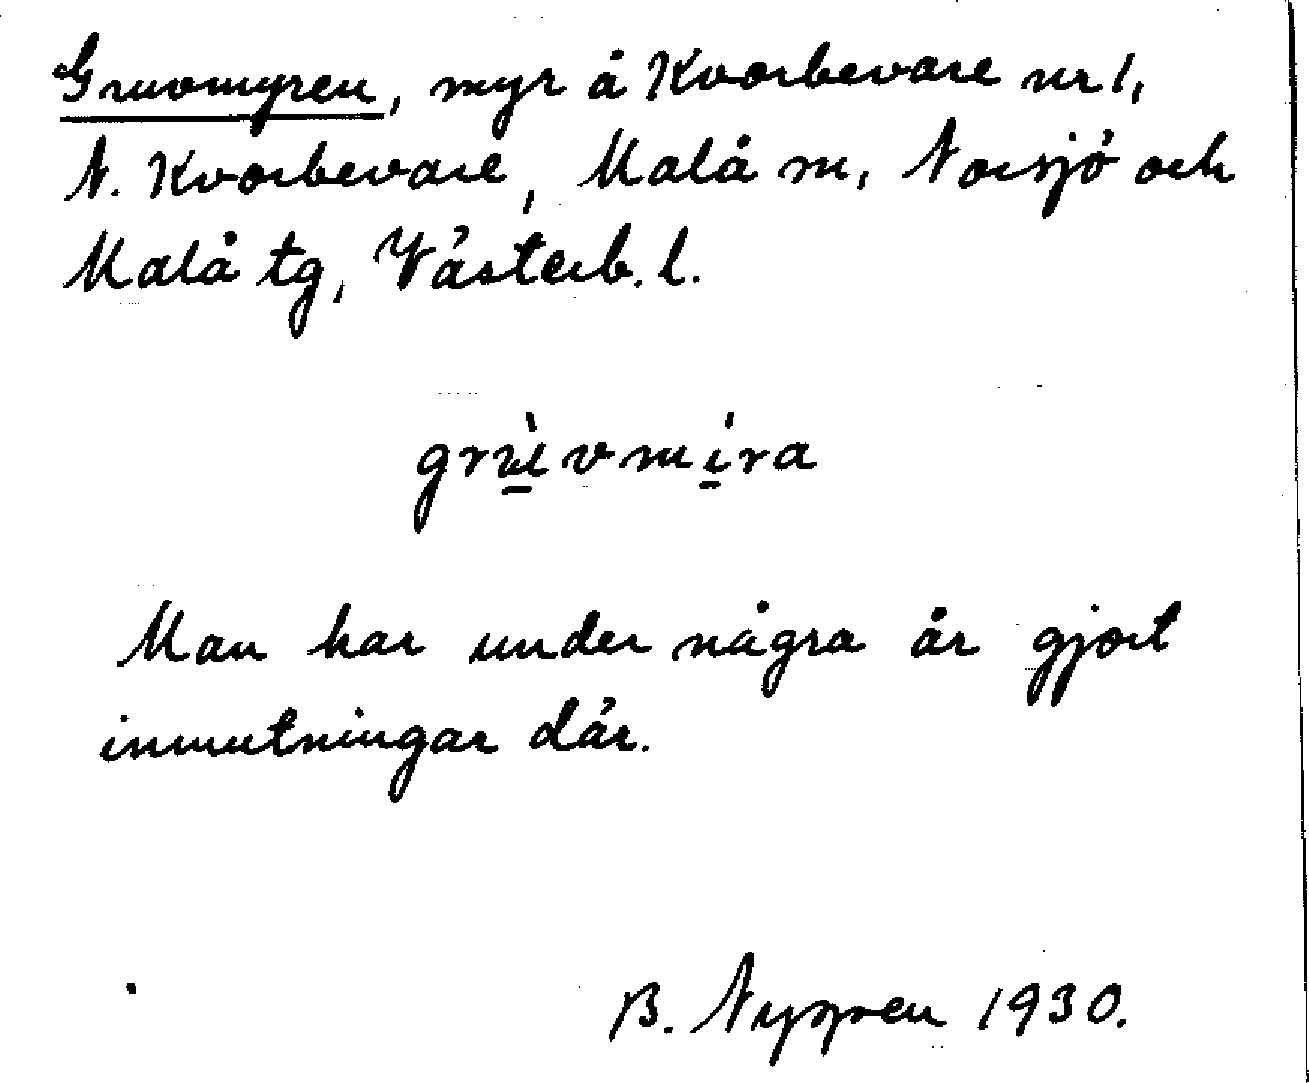 Gruvomyren, myr å Kvorbevare nr 1,
N. Kvorbevare, Malå sn, Norsjö och
Malå tg, Västerb. l.
grùvmíra
Man har under några år gjort
inmutningar där.
B. Nygren 1930.